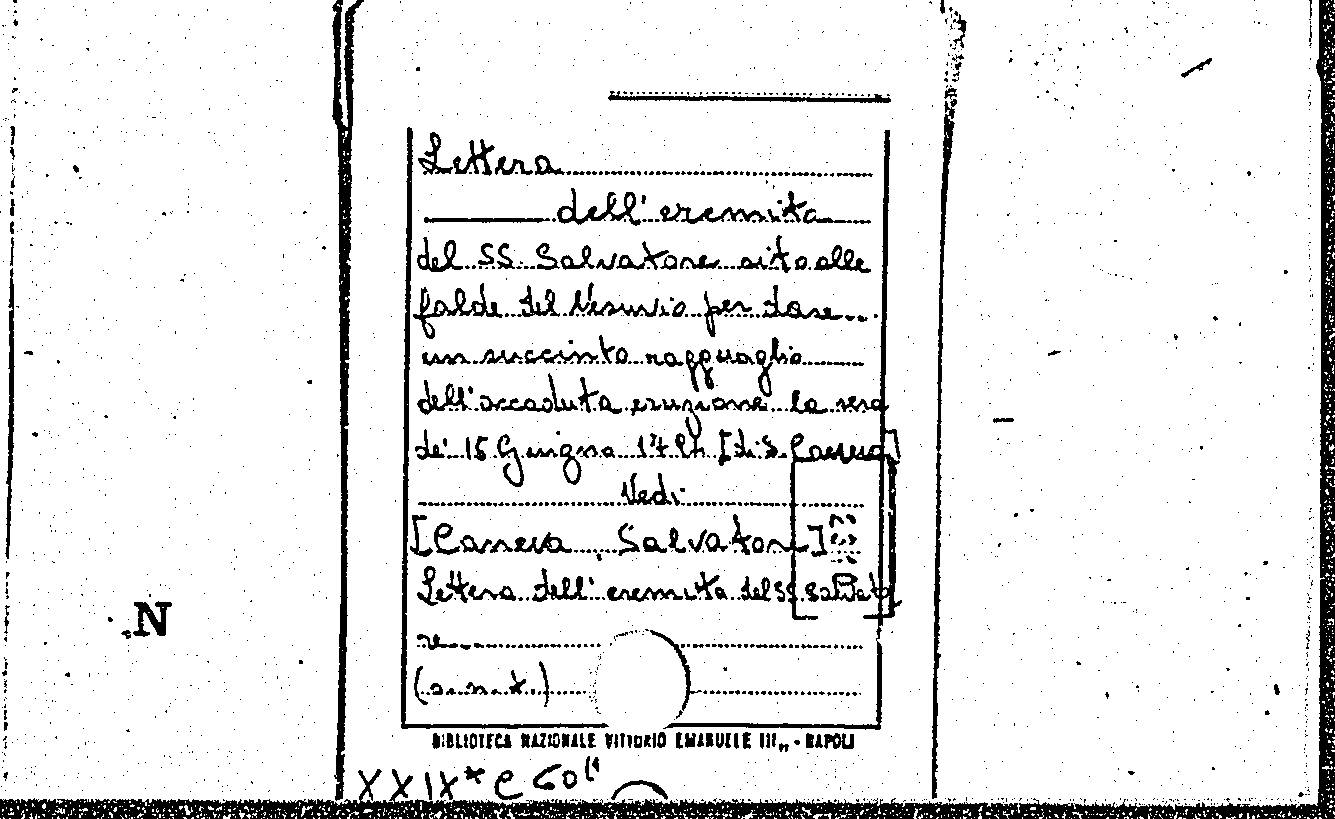 Lettera
dell' eremita
del SS. Salvatore sito alle
falde del Vesuvio per dare...
un succinto ragguaglio
dell'accaduta eruzione la sera
de' 15 Giugno 1794 [di S. Canneva]
Vedi
[Canneva Salvatore]
Lettera dell' eremita del SS Salvato
re....
(s.n.t.)
BIBLIOTECA NAZIONALE VITTORIO EMANUELE III,, - NAPOLI
XXIX* C 60
N